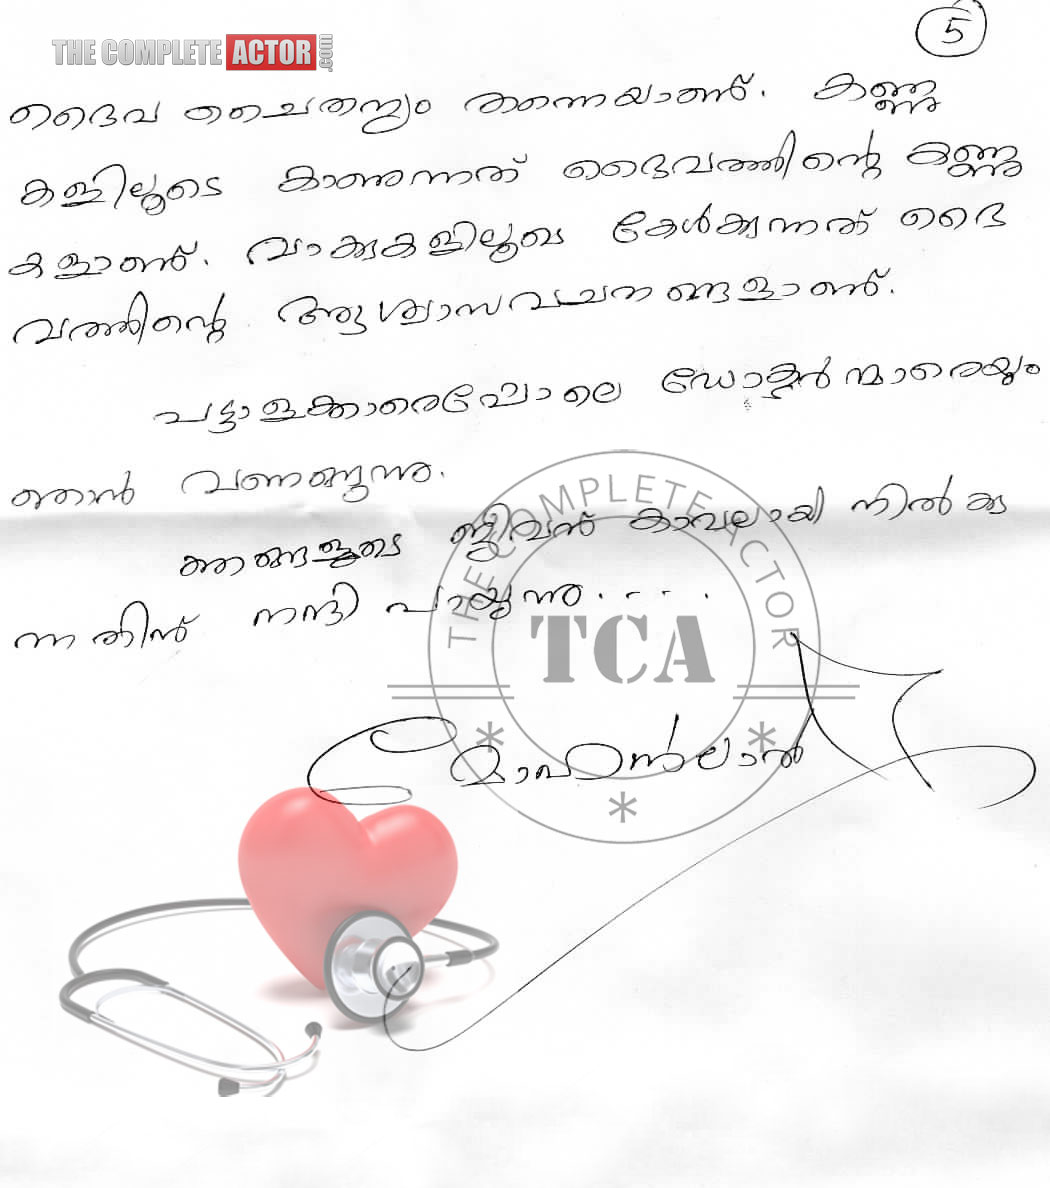 5
THE COMPLETE ACTOR.com
ദൈവ ചൈതന്യം തന്നെയാണ്. കണ്ണു
കളിലൂടെ കാണുന്നത് ദൈവത്തിന്റെ കണ്ണു
കളാണ്. വാക്കുകളിലൂടെ കേൾക്കുന്നത് ദൈ
വത്തിന്റെ ആശ്വാസവചനങ്ങളാണ്.
പട്ടാളക്കാരെപ്പോലെ ഡോക്ടർമാരെയും
ഞാൻ വണങ്ങുന്നു.
ഞങ്ങളുടെ ജീവന് കാവലായി നിൽക്കു
ന്നതിന് നന്ദി പറയുന്നു.....
THE COMPLETE ACTOR
TCA
മോഹൻലാൽ